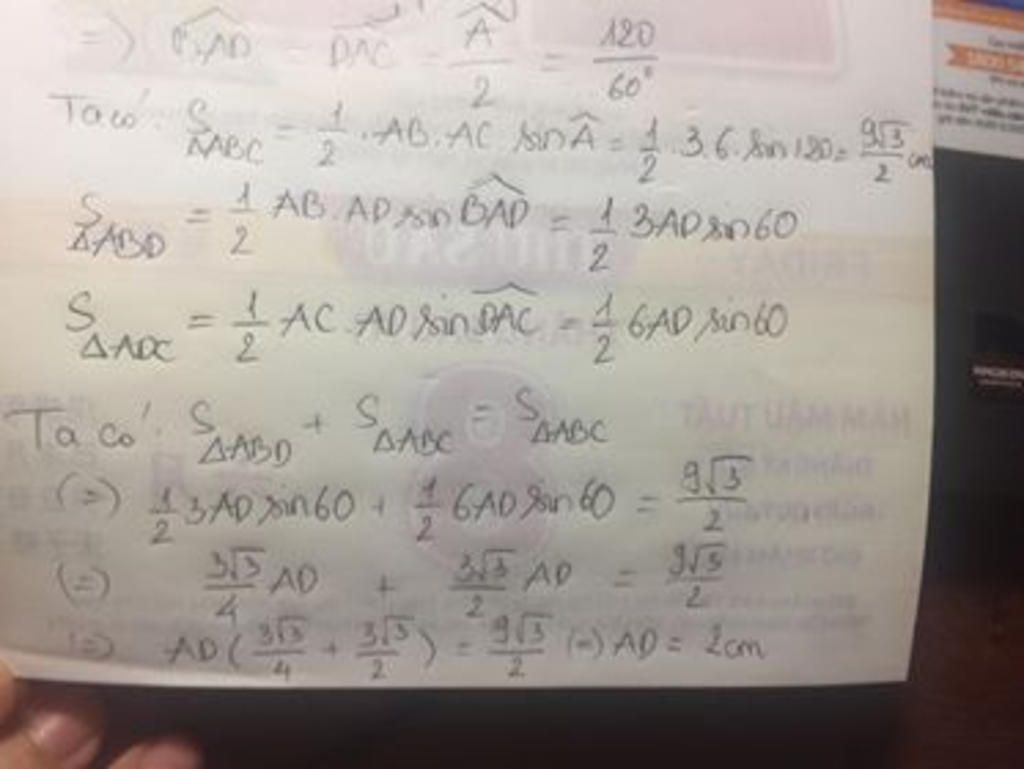 => BAD = DAC = Â/2 = 120/60°
Ta có: S ΔABC = 1/2 . AB . AC sin Â = 1/2 . 3.6 . sin 120 = 9√3/2 cm
S ΔABD = 1/2 AB . AD sin BAD = 1/2 3AD sin 60
S ΔADC = 1/2 AC . AD sin DAC = 1/2 6AD sin 60
Ta có: S ΔABD + S ΔABC = S ΔABC
(=) 1/2 3AD sin 60 + 1/2 6AD sin 60 = 9√3/2
(=) 3√3/4 AD + 3√3/2 AD = 9√3/2
(=) AD ( 3√3/4 + 3√3/2 ) = 9√3/2 (=) AD = 2cm